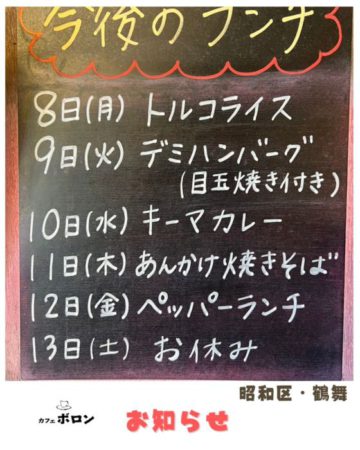 今後のランチ
8日(月) トルコライス
9日(火) デミハンバーグ
(目玉焼き付き)
10日(水) キーマカレー
11日(木) あんかけ焼きそば
12日(金) ペッパーランチ
13日(土) お休み
昭和区・鶴舞
カフェ ボロン
お知らせ